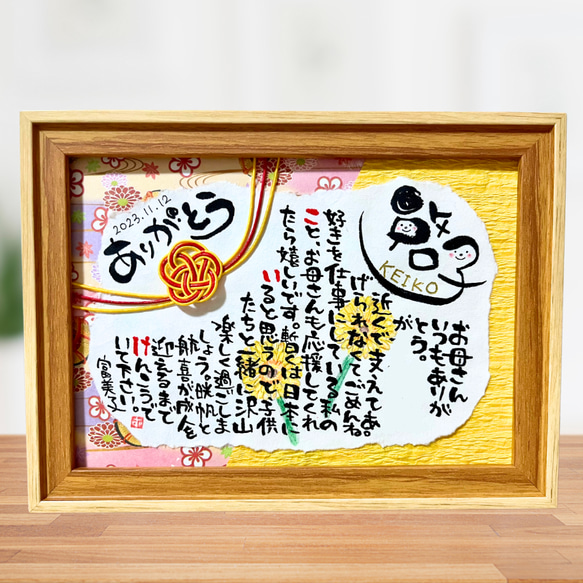 啓子
KEIKO
お母さん
いつもありが
とう。
近くで支えてあ
げられなくてごめんね。
好きを仕事にしている私の
こと、お母さんも応援してくれ
たら嬉しいです。暫くは日本に
いると思うので子供
たちと一緒に沢山
楽しく過ごしま
しょう。暁帆と
航喜が成人を
迎えるまで
けんこうで
いて下さい。
2023.11.12
ありがとう